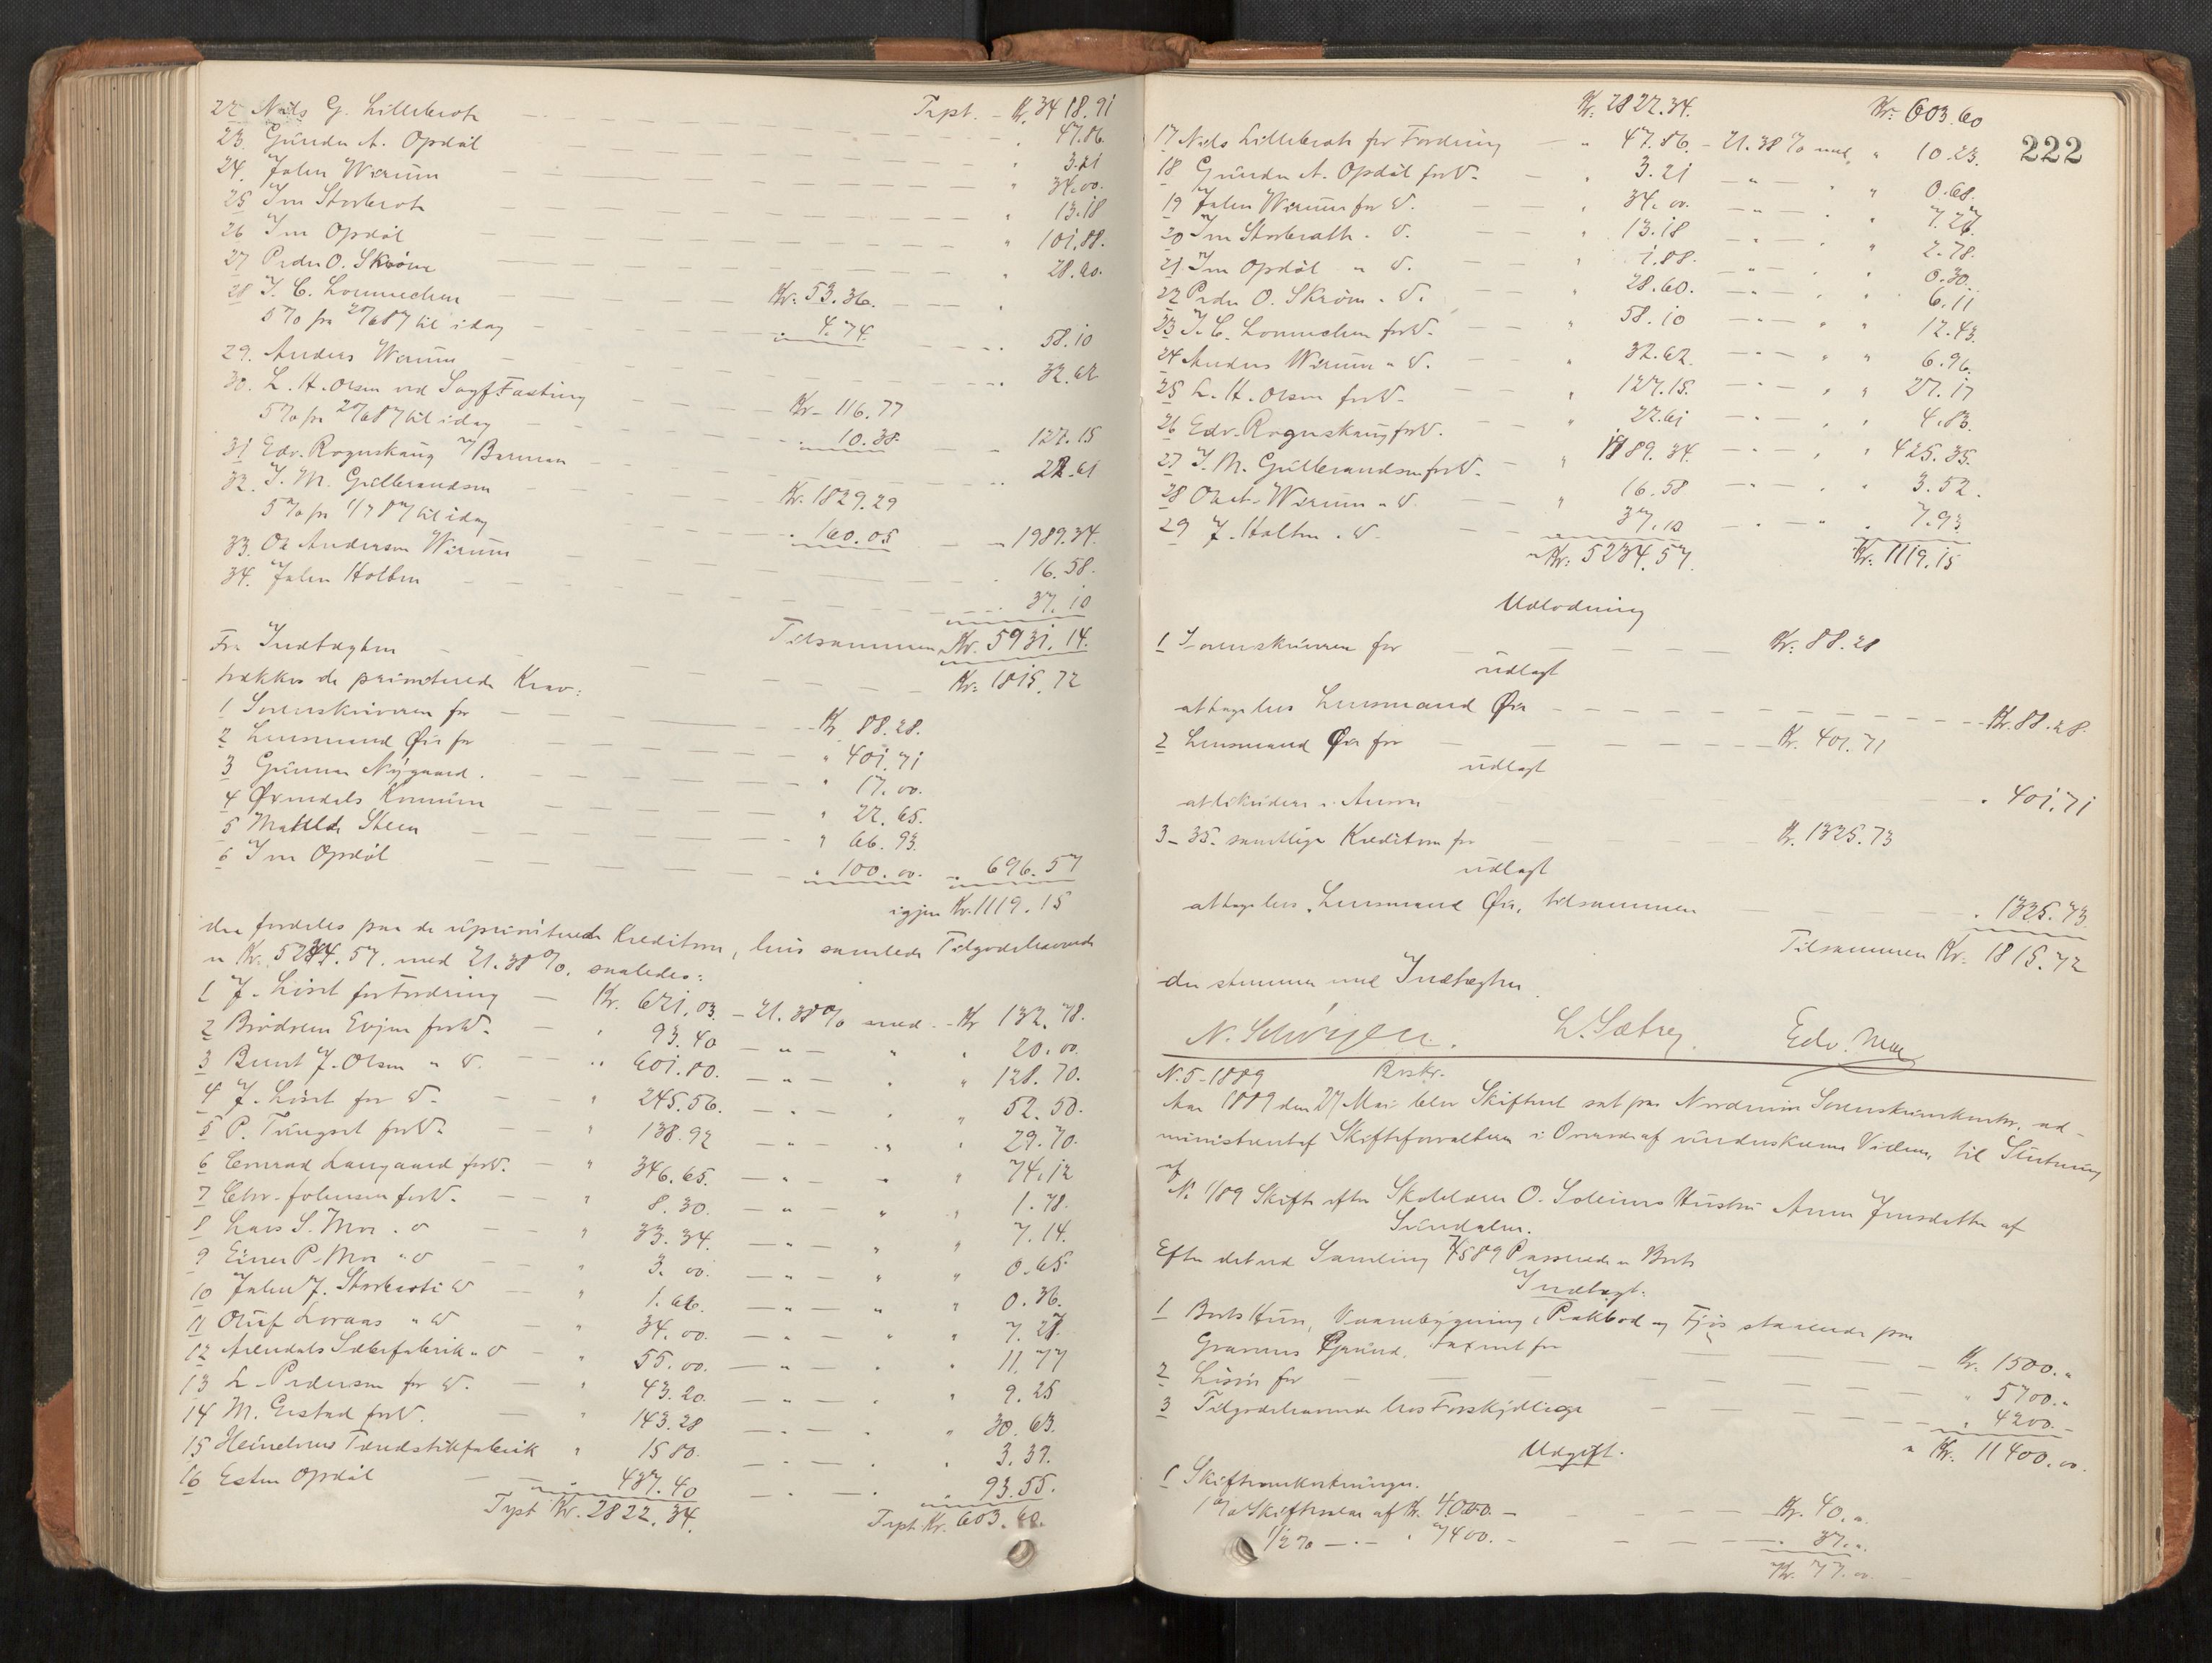 Trpt. - Kr. 3418.91
22 Nils G. Lillebroth - " 47.86
23. Gunder A. Opdöl " 3.21
24. Johan Wirum " 34.00.
25 Iver Storbroth " 13.18
26 Iver Opdöl " 101.88.
27 Peder O. Skrøm " 28.60.
28 I. C. Lommechen Kr. 53.36.
5 % fra 20/6 87 til idag " 4.74. 58.10
29. Anders Wirum 32.62
30. L. H. Olsen ved Sagf. Fasting Kr. 116.77
5 % fra 20/6 87 til idag 10.38. 127.15
31 Edv. Rognskaug 22.61
32. I. M. Gulbrandsen Kr. 1829.29
5 % fra 1/7 87 til idag " 160.05 - 1989.34.
33. Ole Andersen Wirum 16.58.
34. Johan Holten 37.10
Tilsammen Kr. 5931.14.
Fra Indtægten Kr. 1815.72
trækkes de prioriterede Krav:
1 Sorenskriveren for Kr. 88.28.
2 Lensmand Øie for " 401.71
3 Gunnar Nygaard. " 17.00.
4 Øxendals Kommune " 22.65.
5 Mathilde Steen " 66.93.
6 Iver Opdöl " 100.00. - 696.57
igjen Kr. 1119.15
der fordeles paa de uprioriterede Kreditorer, hvis samlede Tilgodehavende
er Kr. 5234.57. med 21.38 %. saaledes:
1 J. Liset for Fordring - Kr. 621.03 - 21.38 % med - Kr. 132.78.
2 Brødrene Evjen for D. " 93.40 - " - " 20.00.
3 Bernt J. Olsen " D. " 601.80. - " - " 128.70.
4 J. Liset for D. " 245.56. - " - " 52.50.
5 P. Tungset for D. " 138.92 - " - " 29.70.
6 Conrad Langaard for D. " 346.65. - " - " 74.12
7 Chr. Johnsen for D. " 8.30. - " - " 1.78.
8 Lars S. Mor " D " 33.34. - " - " 7.14.
9 Einer P. Mor " D " 3.00. - " - " 0.65.
10 Johan J. Storbroth " D " 1.66. - " - " 0.36.
11 Oluf Loraas " D " 34.00. - " - " 7.27.
12 Arendals Sæbefabrik " D " 55.00. - " - " 11.77
13 L. Pedersen for D. " 43.20. - " - " 9.25
14 M. Eistad for D. " 143.28 - " - " 30.63.
15 Tændstikfabrik " 15 80. - " - " 3.37.
16 Esten Opdöl 437.40 - " - " 93.55.
Trpt Kr. 2822.34. Trpt. Kr. 603.60.
Kr. 2822.34. Kr. 603.60
222
17 Nils Lillebroth for Fordring - " 47.86. - 21.38 % med " 10.23.
18 Gunder A. Opdöl for D. - " 3.21 - " - " 0.68.
19 Johan Wirum for D. " 34.00. - " - " 7.27.
20 Iver Storbroth " D. " 13.18 - " - " 2.78.
21 Iver Opdöl " D. " 1.88. - " - " 0.30.
22 Peder O. Skrøm " D. " 28.60. - " - " 6.11
23 I. C. Lommechen for D. " 58.10 - " - " 12.43.
24 Anders Wirum " D. " 32.62. - " - " 6.96.
25 L. H. Olsen for D. " 127.15. - " - " 27.17
26 Edv. Rognskaug for D. " 22.61 - " - " 4.83.
27 I. M. Gulbrandsen for D. " 1989.34. - " - " 425.35.
28 Ole A. Wirum " D. " 16.58 - " - " 3.52.
29 J. Holten " D. 37.10 - " - " 7.93
Kr: 5234.57. Kr: 1119.15
Udlodning
1 Sorenskriveren for Kr: 88.28
udlagt
at tage hos Lensmand Øie Kr. 88.28.
2 Lensmand Øie for Kr. 401.71
udlagt
at likvidere i Ansvar " 401.71
3-35. samtlige Kreditorer for Kr. 1325.73
udlagt
at tage hos Lensmand Øie, tilsammen " 1325.73
Tilsammen Kr: 1815.72
der stemmer med Indtægten.
N. Schiøtzen. L. Sætrey. Edv. Moe
N. 5-1889
Aar 1889 den 27 Mai blev Skifteret sat paa Nordmør Sorenskriverkontor, ad-
ministreret af Skifteforvalteren i Overvær af underskrevne Vidner, til Slutning
af
No 1/89 Skifte efter Skolelærer O. Soleims Hustru Anne Jensdatter af
Sundalen.
Efter det ved Samling 4/5 89 Passerede er Boets
Indtægt:
1 Boets Huse, Vaanebygning, Pakbod og Fjøs staaende paa
Grund, taxeret for Kr. 1500."
2 Løsøre for " 5700."
3 Tilgodehavende hos Forskjellige " 4200.-
Kr. 11400.00.
Udgift.
1 Skifteomkostninger.
1 % Skiftesalær af Kr. 4000. - Kr. 40."
1/2 % - " - " 7400. - " 37."
Kr. 77.00